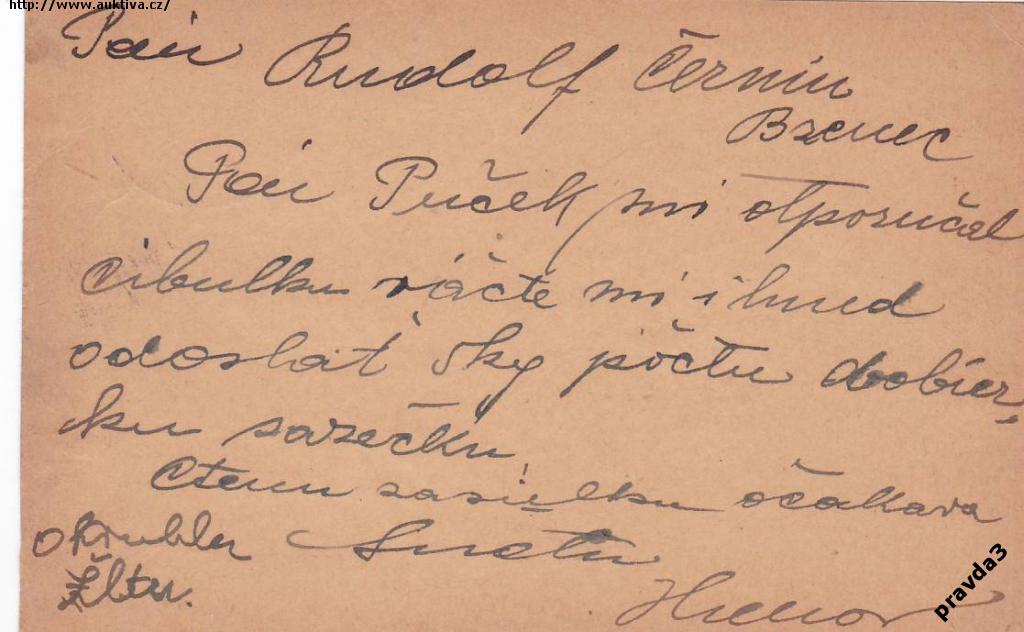 http://www.auktiva.cz/
Pán Rudolf Černín
Bzenec
Pán Puček mi otporučal
cibulku ráčte mi ihneď
odoslať kg počtu dobier,
ku sazečku
Ctenu zasielku očakava
okruhlu
žltu.
pravda3